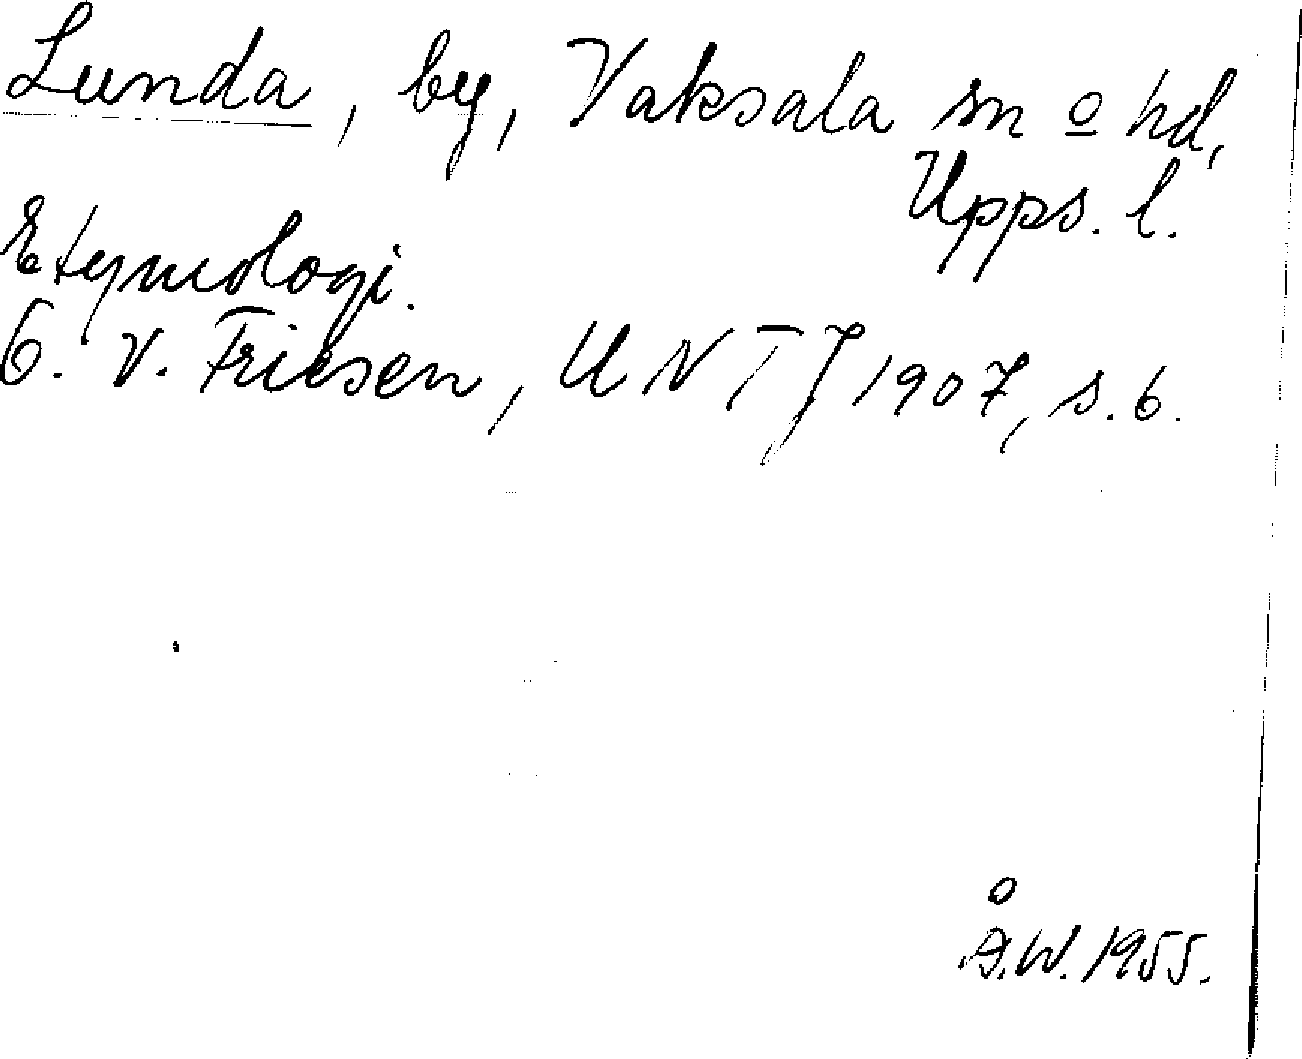 Lunda, by, Vaksala sn o hd,
Upps. l.
Etymologi.
O. v. Friesen, UNTJ 1907, s. 6.
Å.W. 1955.